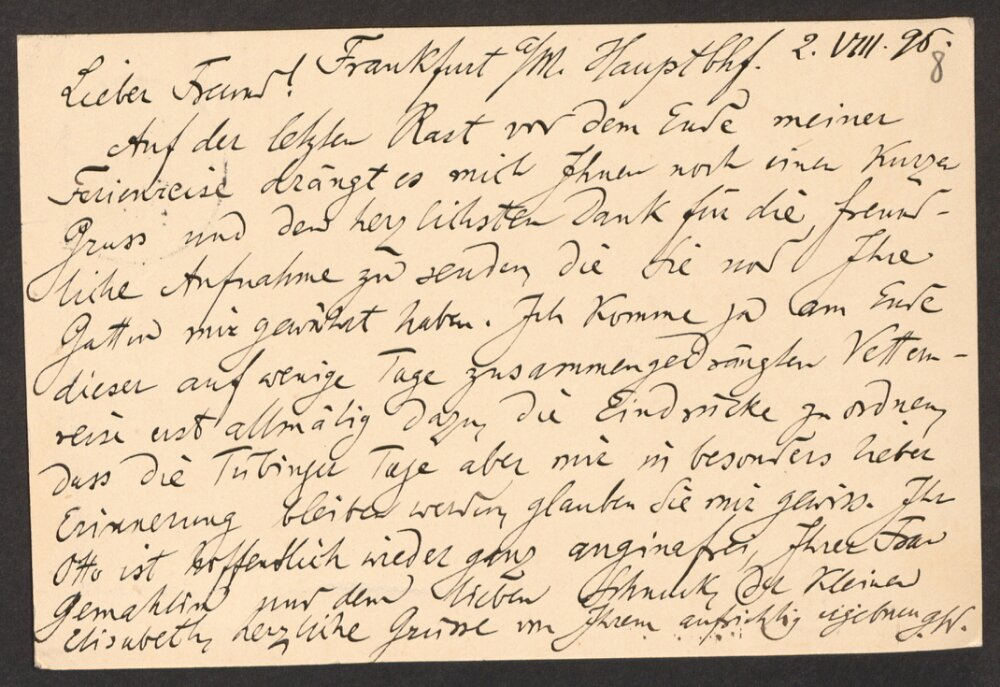 Frankfurt a/M. Hauptbhf. 2. VIII. 95.
8
Lieber Freund!
Auf der letzten Rast vor dem Ende meiner
Ferienreise drängt es mich Ihnen noch einen kurzen
Gruss und den herzlichsten Dank für die freund-
liche Aufnahme zu senden, die Sie und Ihre
Gattin mir gewährt haben. Ich komme ja am Ende
dieser auf wenige Tage zusammengedrängten Vettern-
reise erst allmälig dazu, die Eindrücke zu ordnen,
dass die Tübinger Tage aber mir in besonders lieber
Erinnerung bleiben werden, glauben Sie mir gewiss. Ihr
Otto ist hoffentlich wieder ganz anginafrei, Ihrer Frau
Gemahlin und dem lieben der kleinen
Elisabeth, herzliche Grüsse von Ihrem aufrichtig ergebenen